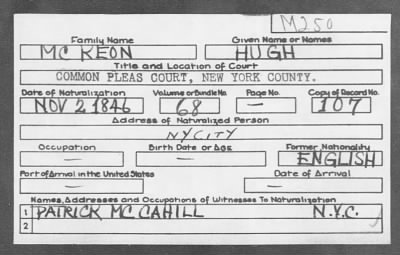 M250
Family Name Given Name or Names
MC KEON HUGH
Title and Location of Court
COMMON PLEAS COURT, NEW YORK COUNTY.
Date of Naturalization Volume or Bundle No. Page No. Copy of Record No.
NOV 2 1846 68 — 107
Address of Naturalized Person
NYCITY
Occupation Birth Date or Age Former Nationality
— — ENGLISH
Port of Arrival in the United States Date of Arrival
— —
Names, Addresses and Occupations of Witnesses To Naturalization
1 PATRICK MC CAHILL N.Y.C.
2